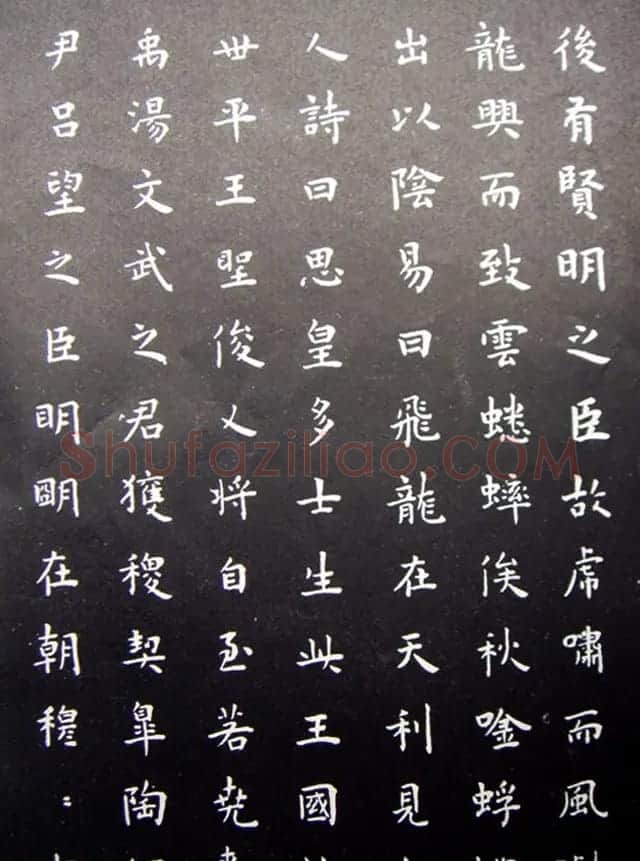 後有賢明之臣故虎嘯而風
龍興而致雲蟋蟀俟秋唫蜉
出以陰易曰飛龍在天利見
人詩曰思皇多士生此王國
世平王聖俊乂将自至若堯
禹湯文武之君獲稷契皐陶
尹呂望之臣明明在朝穆：
Shufaziliao.COM